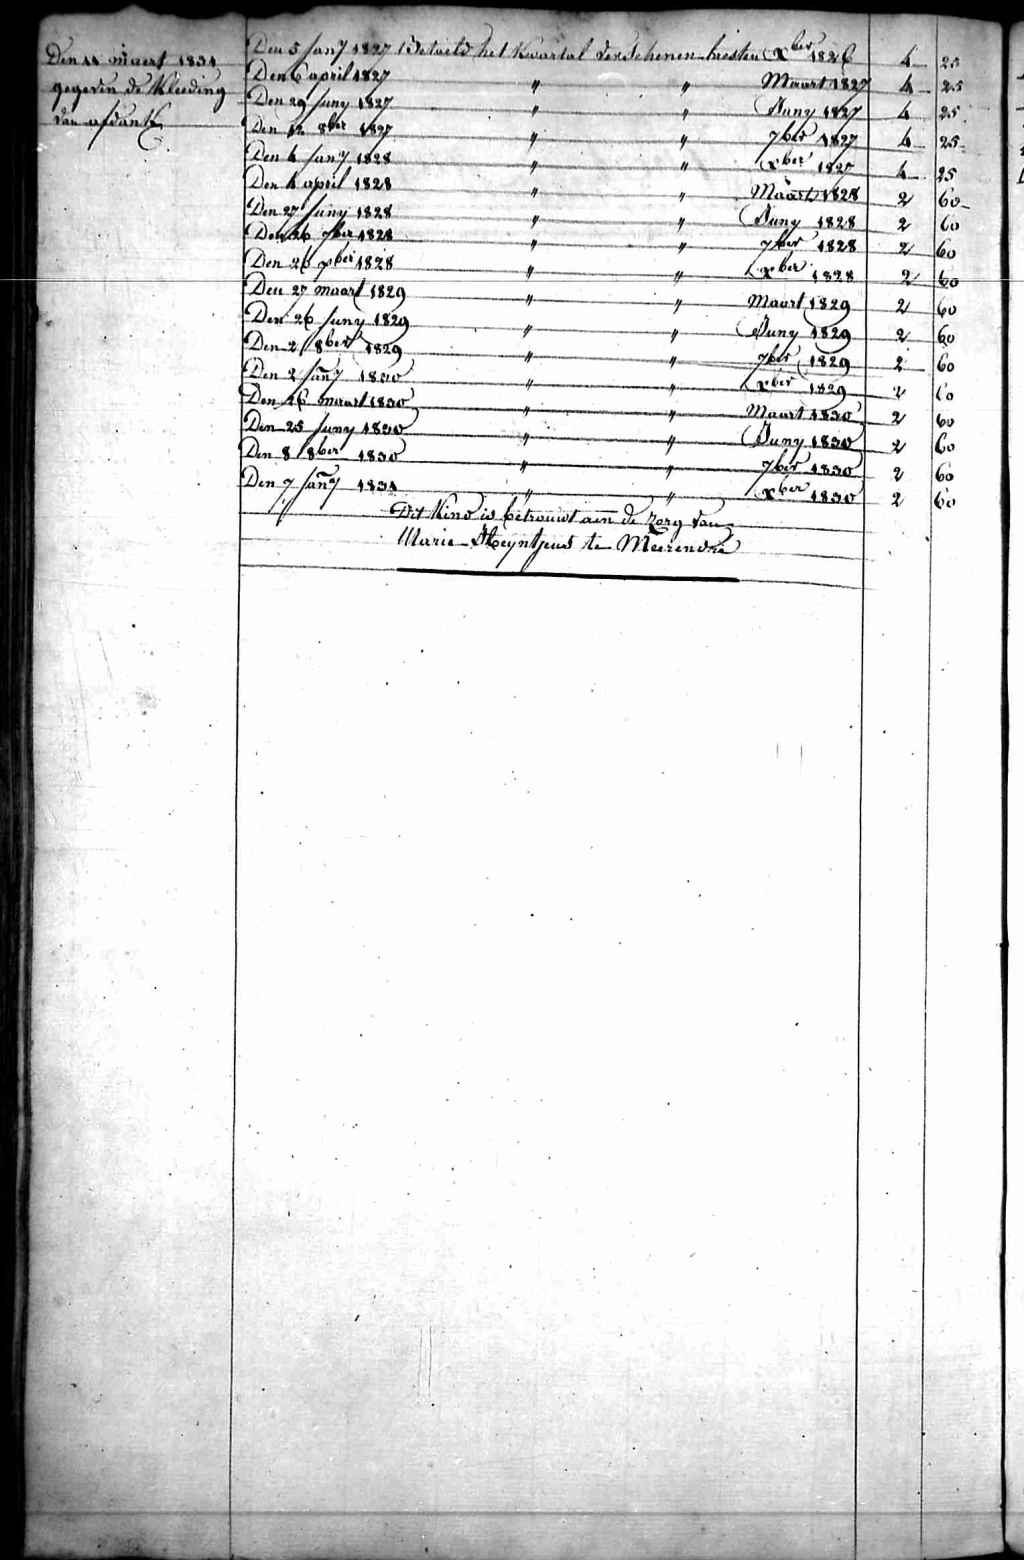 Den 11 maert 1831
gegeven de Kleeding
van
Den 5 Jany 1827 Betaeld het Kwartal verschenen Xber 1826 4 25
Den 6 april 1827 " " Maart 1827 4 25
Den 29 Juny 1827 " " Juny 1827 4 25
Den 12 8ber 1827 " " 7ber 1827 4 25
Den 4 Jany 1828 " " xber 1827 4 25
Den 4 april 1828 " " Maart 1828 2 60
Den 27 Juny 1828 " " Juny 1828 2 60
Den 26 7ber 1828 " " 7ber 1828 2 60
Den 26 xber 1828 " " xber 1828 2 60
Den 27 maart 1829 " " Maart 1829 2 60
Den 26 Juny 1829 " " Juny 1829 2 60
Den 2 8ber 1829 " " 7ber 1829 2 60
Den 2 Jany 1830 " " xber 1829 2 60
Den 26 maart 1830 " " Maart 1830 2 60
Den 25 Juny 1830 " " Juny 1830 2 60
Den 8 8ber 1830 " " 7ber 1830 2 60
Den 7 Jany 1831 " " xber 1830 2 60
Dit Kind is betrouwt aen de zorg van
Marie Heyntjens te Meerendré